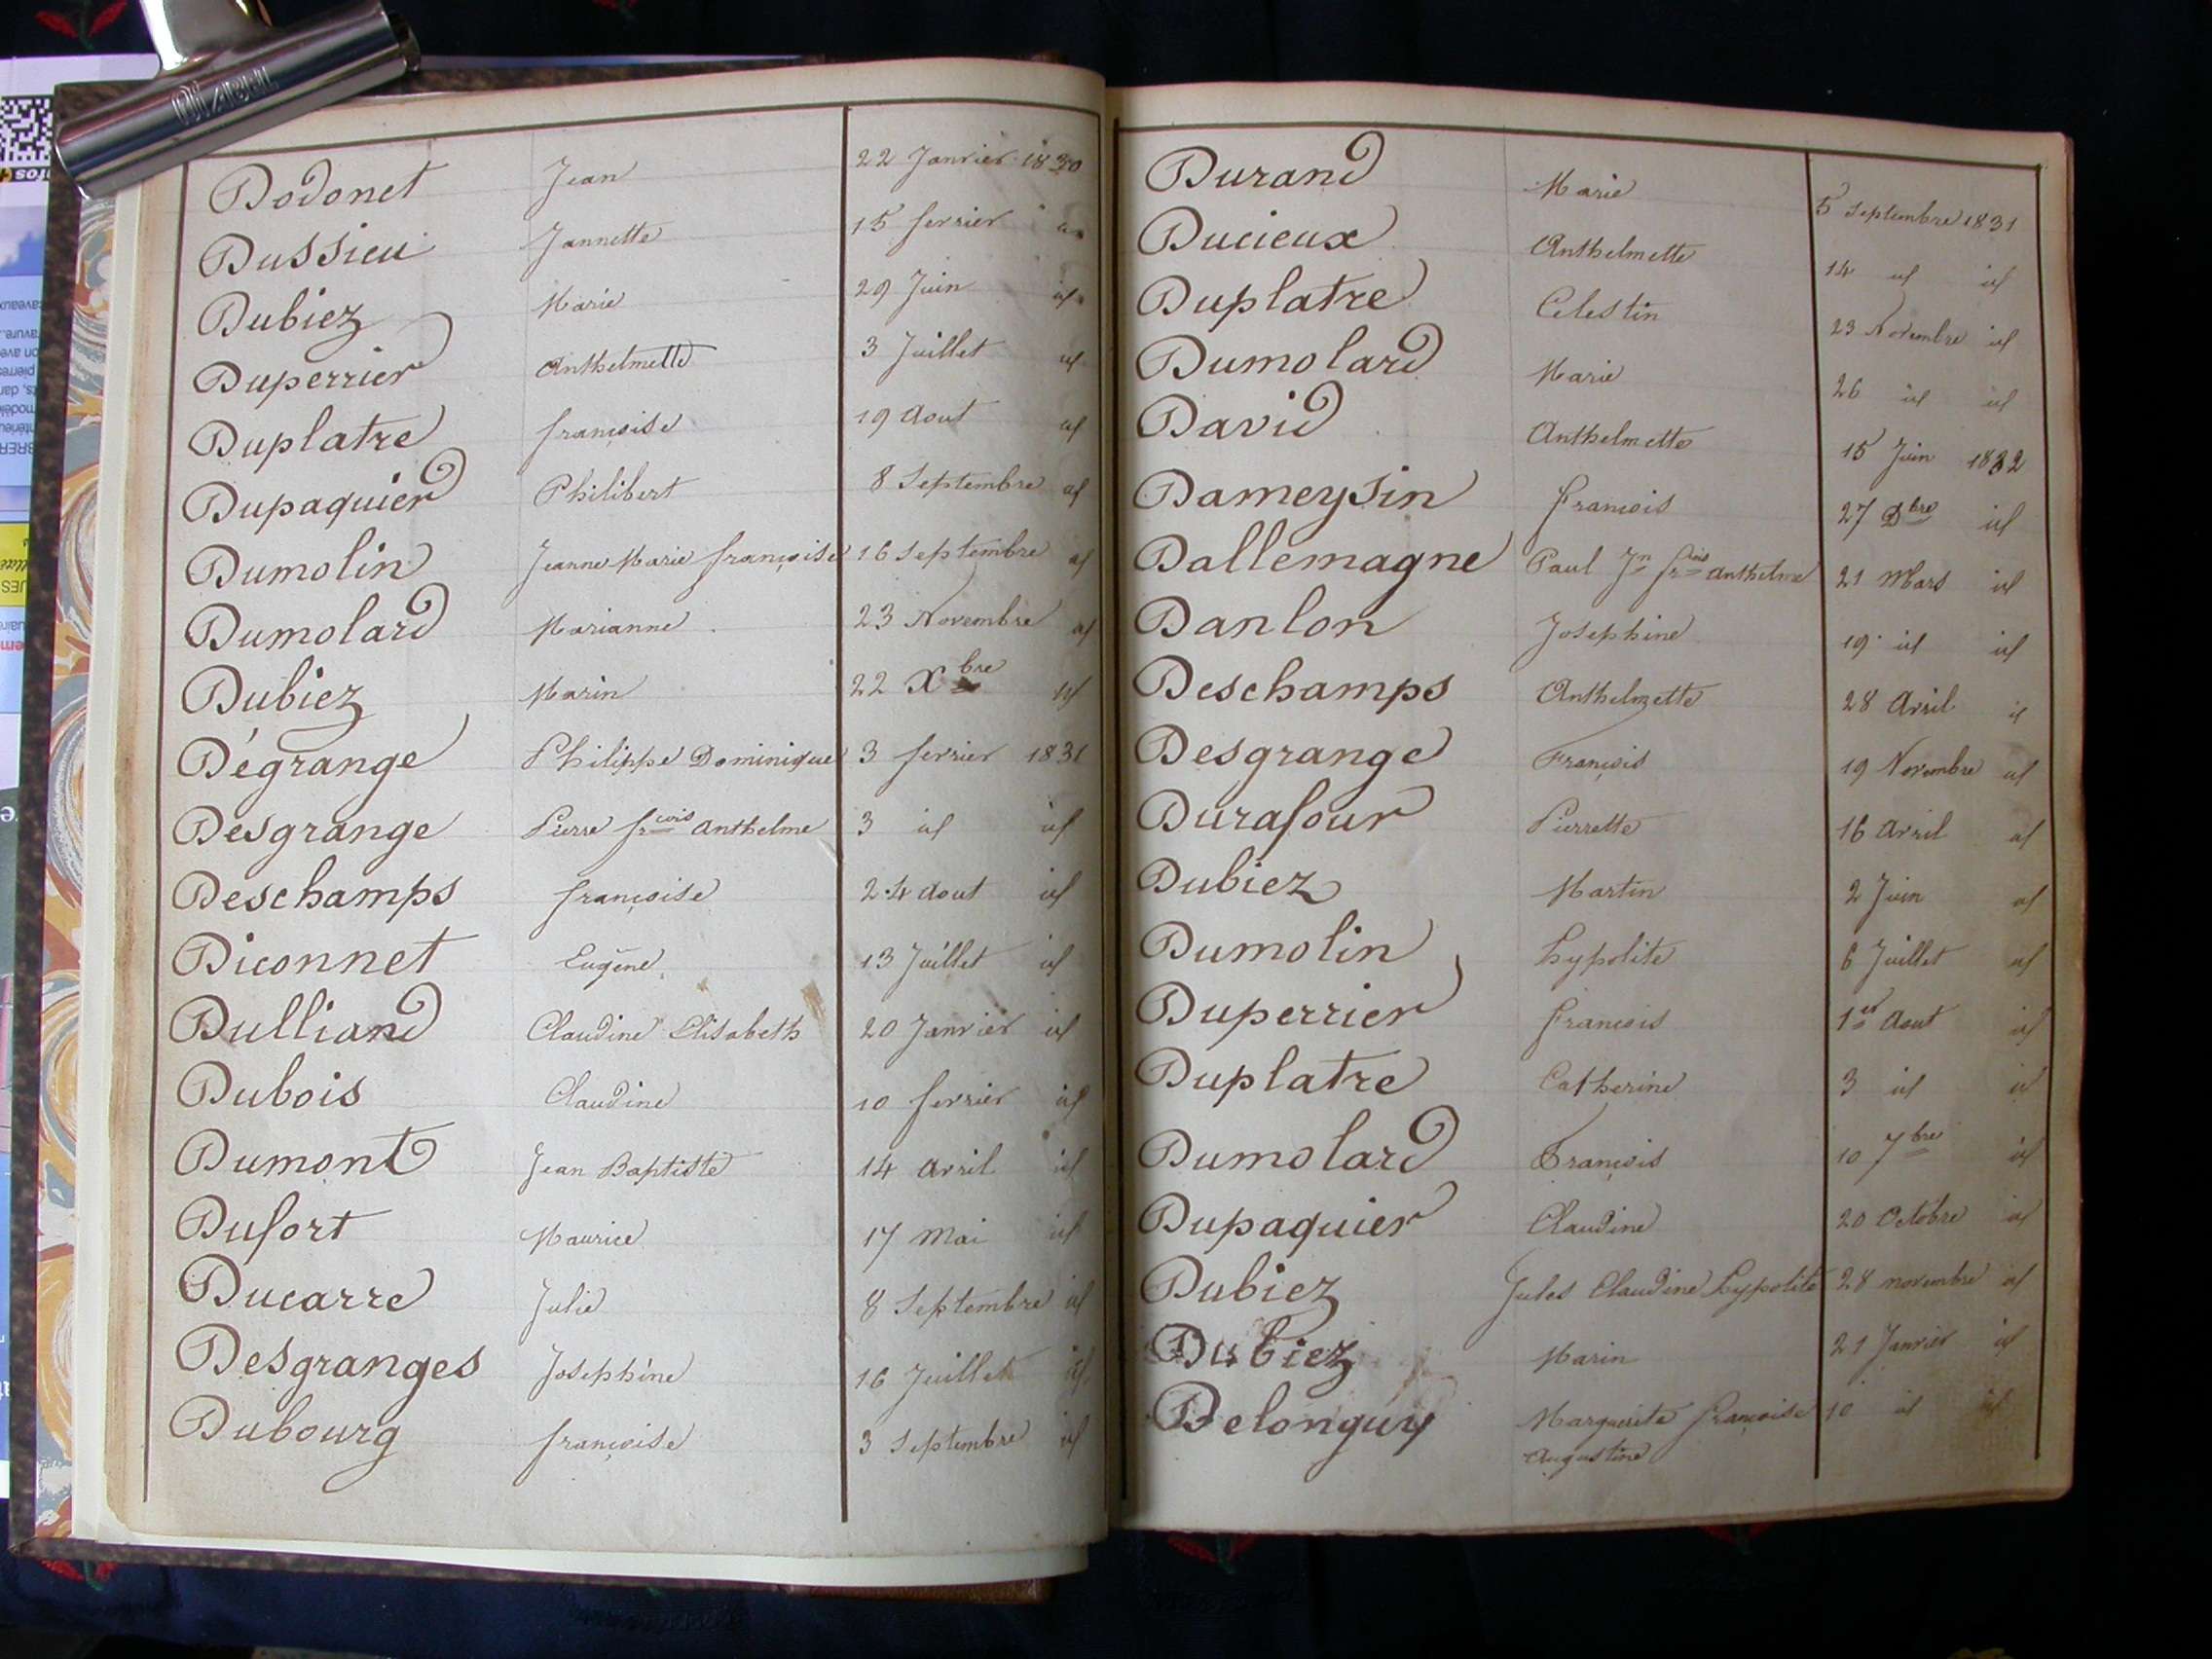 Dodonet Jean 22 Janvier 1830
Dussieu Jannette 15 fevrier id
Dubiez Marie 29 Juin id
Duperrier Anthelmette 3 Juillet id
Duplatre françoise 19 Aout id
Dupaquier Philibert 8 Septembre id
Dumolin Jeanne Marie françoise 16 Septembre id
Dumolard Marianne 23 Novembre id
Dubiez Marin 22 Xbre id
Dégrange Philippe Dominique 3 fevrier 1831
Desgrange Pierre frcois Anthelme 3 id id
Deschamps françoise 24 Aout id
Diconnet Eugène 13 Juillet id
Dulliand Claudine Elisabeth 20 Janvier id
Dubois Claudine 10 fevrier id
Dumont Jean Baptiste 14 Avril id
Dufort Maurice 17 Mai id
Ducarre Julie 8 Septembre id
Desgranges Josephine 16 Juillet id
Dubourg françoise 3 Septembre id
Durand Marie 5 Septembre 1831
Ducieux Anthelmette 14 id id
Duplatre Celestin 23 Novembre id
Dumolard Marie 26 id id
David Anthelmette 15 Juin 1832
Dameysin francois 27 Dbre id
Dallemagne Paul Jn frcois Anthelme 21 Mars id
Danlon Josephine 19 id id
Deschamps Anthelmette 28 Avril id
Desgrange François 19 Novembre id
Durafour Pierrette 16 Avril id
Dubiez Martin 2 Juin id
Dumolin hypolite 6 Juillet id
Duperrier francois 1er Aout id
Duplatre Catherine 3 id id
Dumolard François 10 7bre id
Dupaquier Claudine 20 Octobre id
Dubiez Jules Claudine hypolite 28 novembre id
Dubiez Marin 21 Janvier id
Delonguy Marguerite françoise 10 id id
Augustine